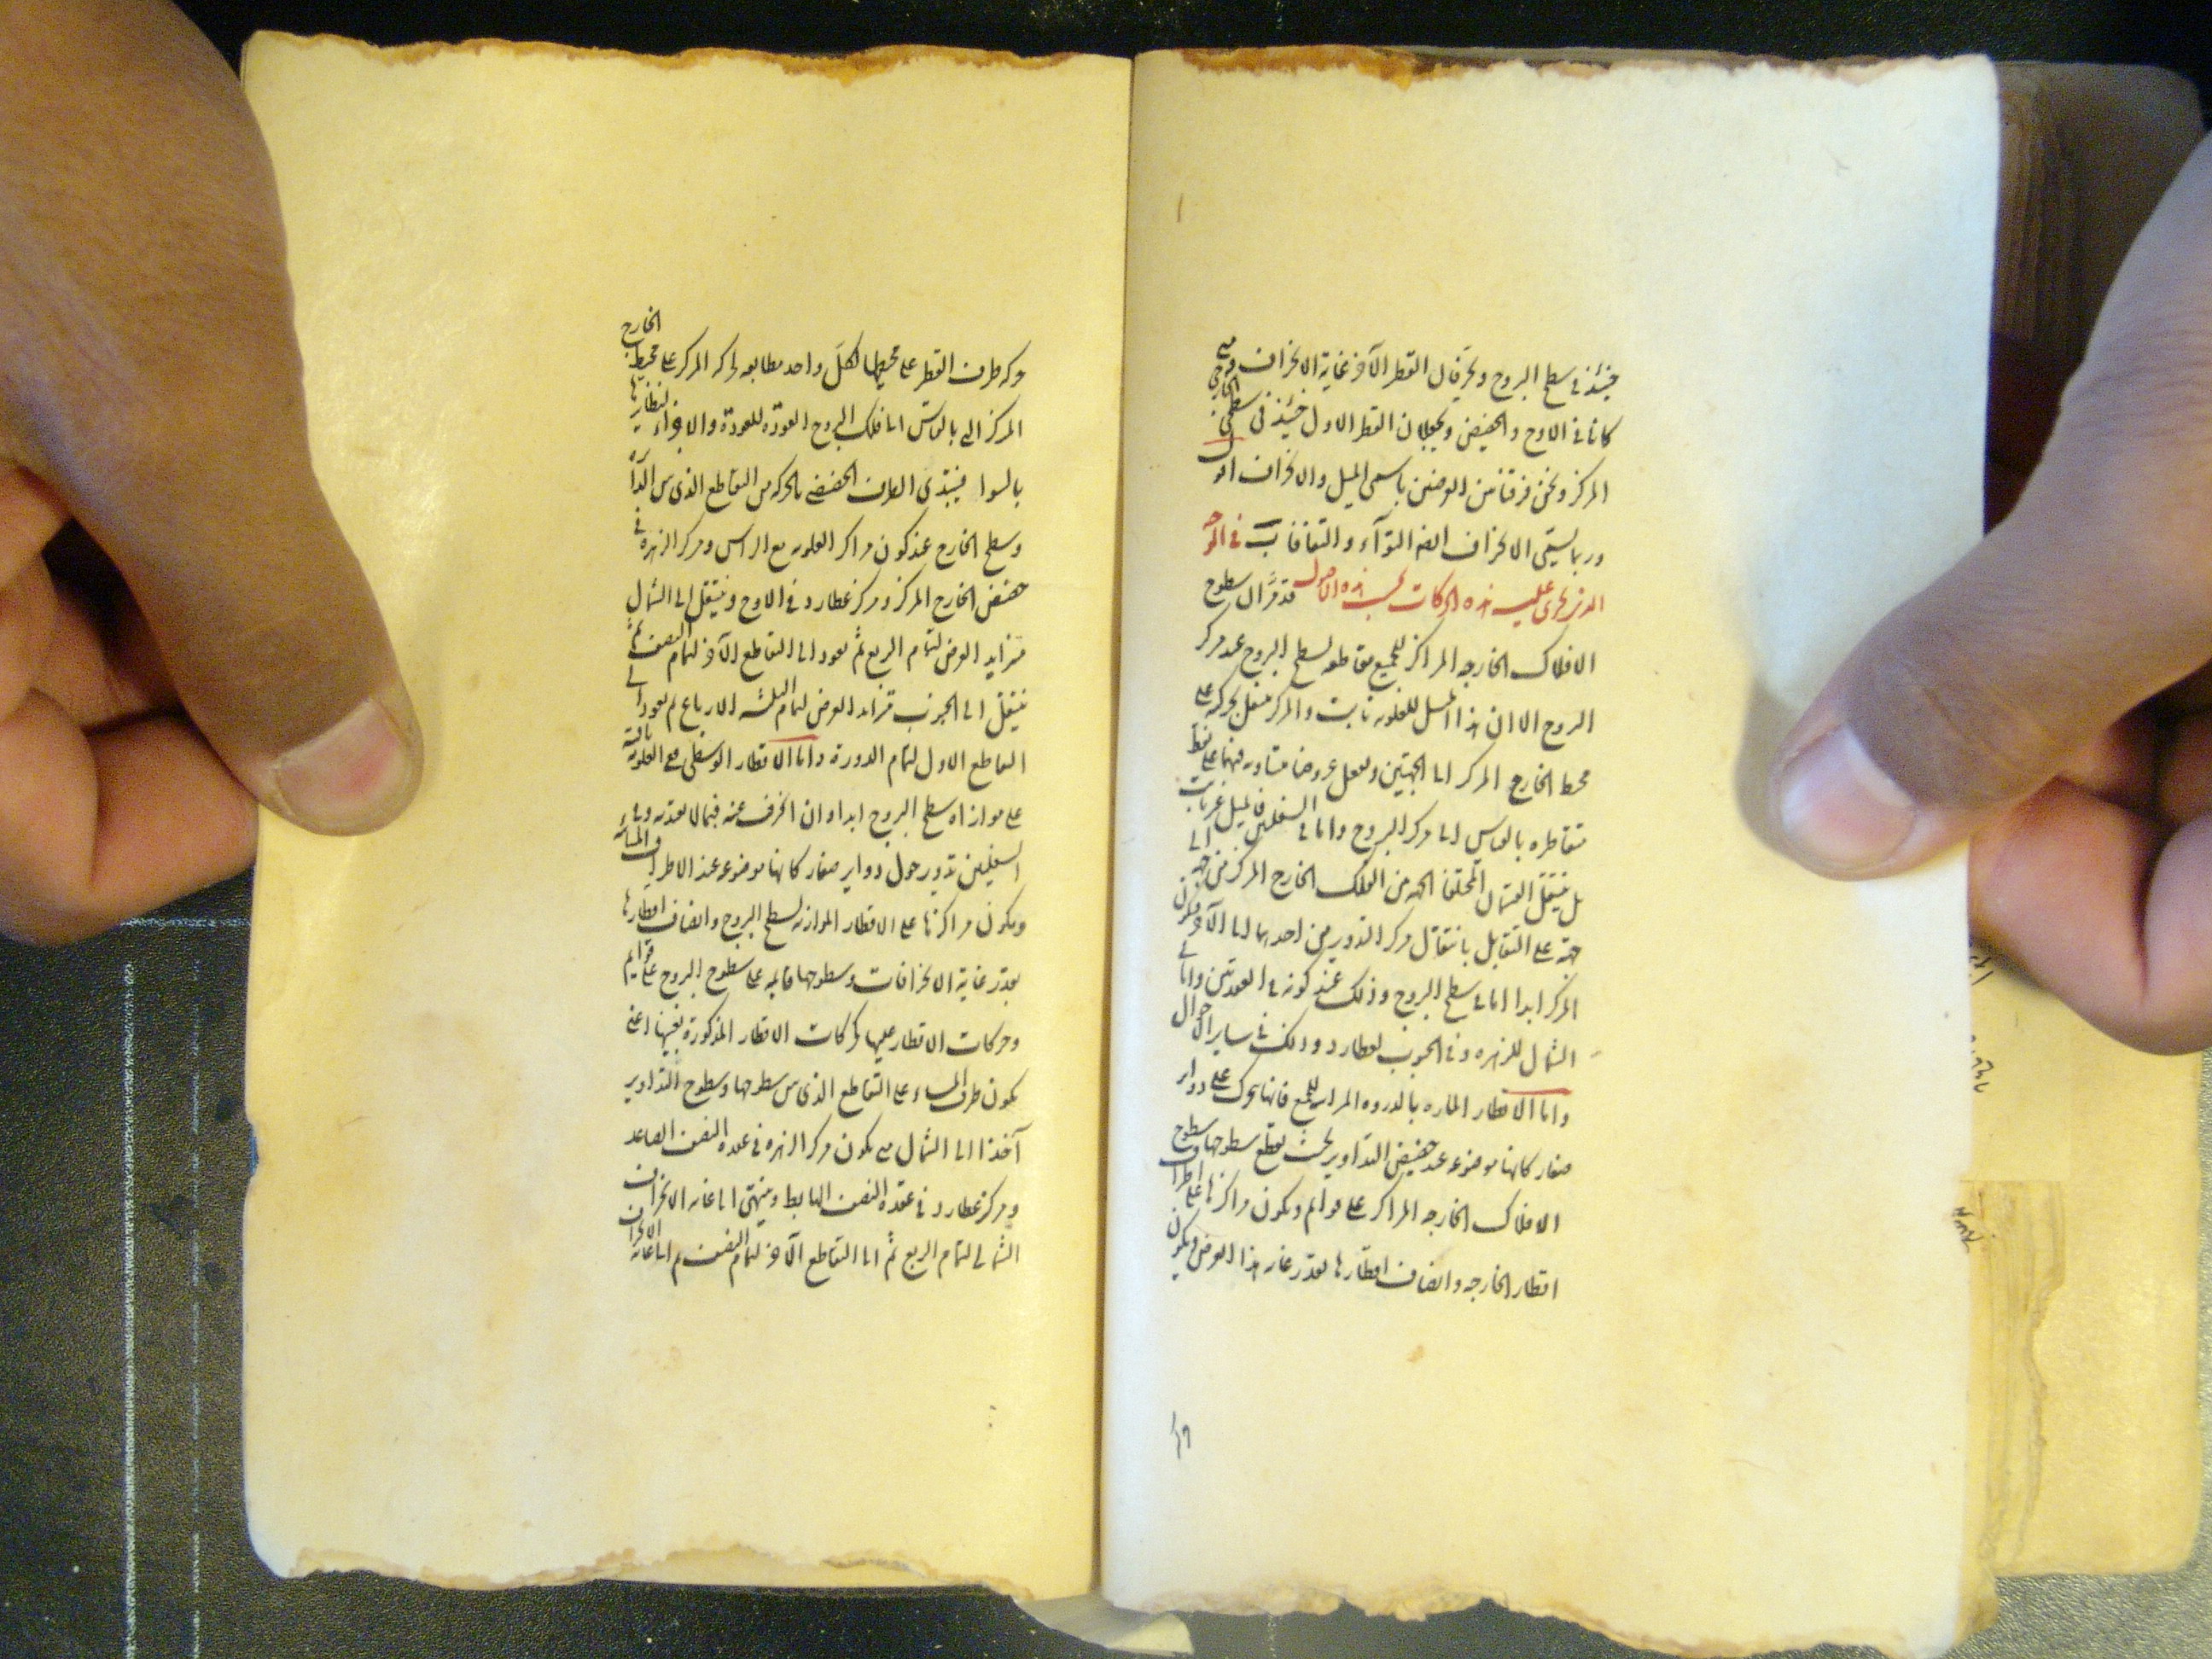 حينئذ في سطح البروج ويحرفان القطر الآخر غاية الانحراف ومتى
كانا في الاوج والحضيض ويجعلان القطر الاول حينئذ في سطحي الخارجي
المركز ونحن فرقنا بين العرضين باسمي الميل والانحراف
وربما يسمى الانحراف ايضا التواء والتفافا ب في الوجه
الذي يجري عليه هذه الحركات بحسب هذه الاصول قد مر ان سطوح
الافلاك الخارجه المراكز للجميع مقاطعه لسطح البروج عند مركز
البروج الا ان هذا الميل للعلويه ثابت والمركز ينتقل بحركته على
محيط الخارج المركز الى الجهتين ويفعل عروضا متساويه فيهما على نقط
متقاطره بالقياس الى مركز البروج واما في السفليين فالميل غير ثابت
بل ينتقل القسمان المختلفا الجهه من الفلك الخارج المركز من جهه الى
جهة على التقابل بانتقال مركز التدوير من احديهما الى الآخر فيكون
المركز ابدا اما في سطح البروج وذلك عند كونه في العقدتين واما في
الشمال للزهره وفي الجنوب لعطارد وذلك في ساير الاحوال
واما الاقطار الماره بالذروه المرئيه للجميع فانها تتحرك على دواير
صغار كانها موضوعه عند حضيض التداوير بحيث تقطع سطوحها سطوح
الافلاك الخارجه المراكز على قوايم ويكون مراكزها على اطراف
اقطار الخارجه وانصاف اقطارها بقدر غاية هذا العرض ويكون
حركه طرف القطر على محيطها لكل واحد مطابقه لحركه المركز على محيط الخارج
المركز التي بالقياس الى فلك البروج العودة للعودة والاجزاء لنظايرها
بالسوا فيبتدى الطرف الحضيضي بالحركه من التقاطع الذي بين الدائرة
وسطح الخارج عند كون مراكز العلويه مع الراس ومركز الزهره في
حضيض الخارج المركز ومركز عطارد في الاوج وينتقل الى الشمال
متزايد العرض لتمام الربع ثم يعود الى التقاطع الآخر لتمام النصف ثم
ينتقل الى الجنوب متزايد العرض لتمام الثلثه الارباع ثم يعود الى
التقاطع الاول لتمام الدورة واما الاقطار الوسطى ففي العلويه ثابته
على موازاه سطح البروج ابدا وان انحرف عنه فبما لا يعتد به وفي
السفليين تدور حول دواير صغار كانها موضوعه عند الاطراف المسائيه
ويكون مراكزها على الاقطار الموازيه لسطح البروج وانصاف اقطارها
بقدر غاية الانحرافات وسطوحها قايمه على سطوح البروج على قوايم
وحركات الاقطار عليها كحركات الاقطار المذكورة بعينها اعني
يكون طرف المساء على التقاطع الذي بين سطوحها وسطوح التداوير
آخذا الى الشمال حين يكون مركز الزهره في عقده النصف الصاعد
ومركز عطارد في عقده النصف الهابط وينتهي الى غايه الانحراف
الشمالي لتمام الربع ثم الى التقاطع الآخر لتمام النصف ثم الى غايه الانحراف